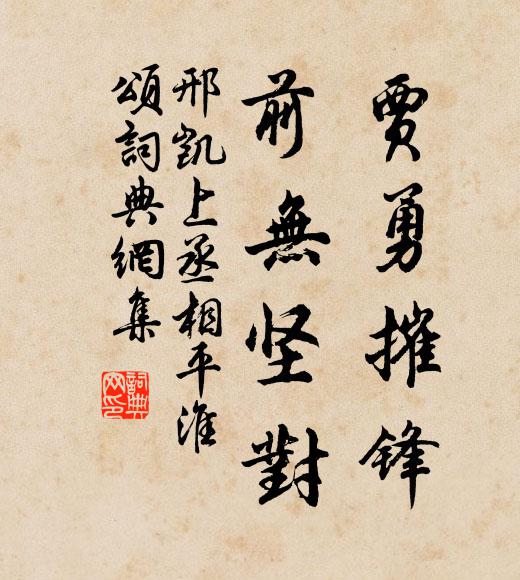 賈勇摧鋒
前無坚對
邢凱上丞相平淮
頌詞典網集
詞典网印